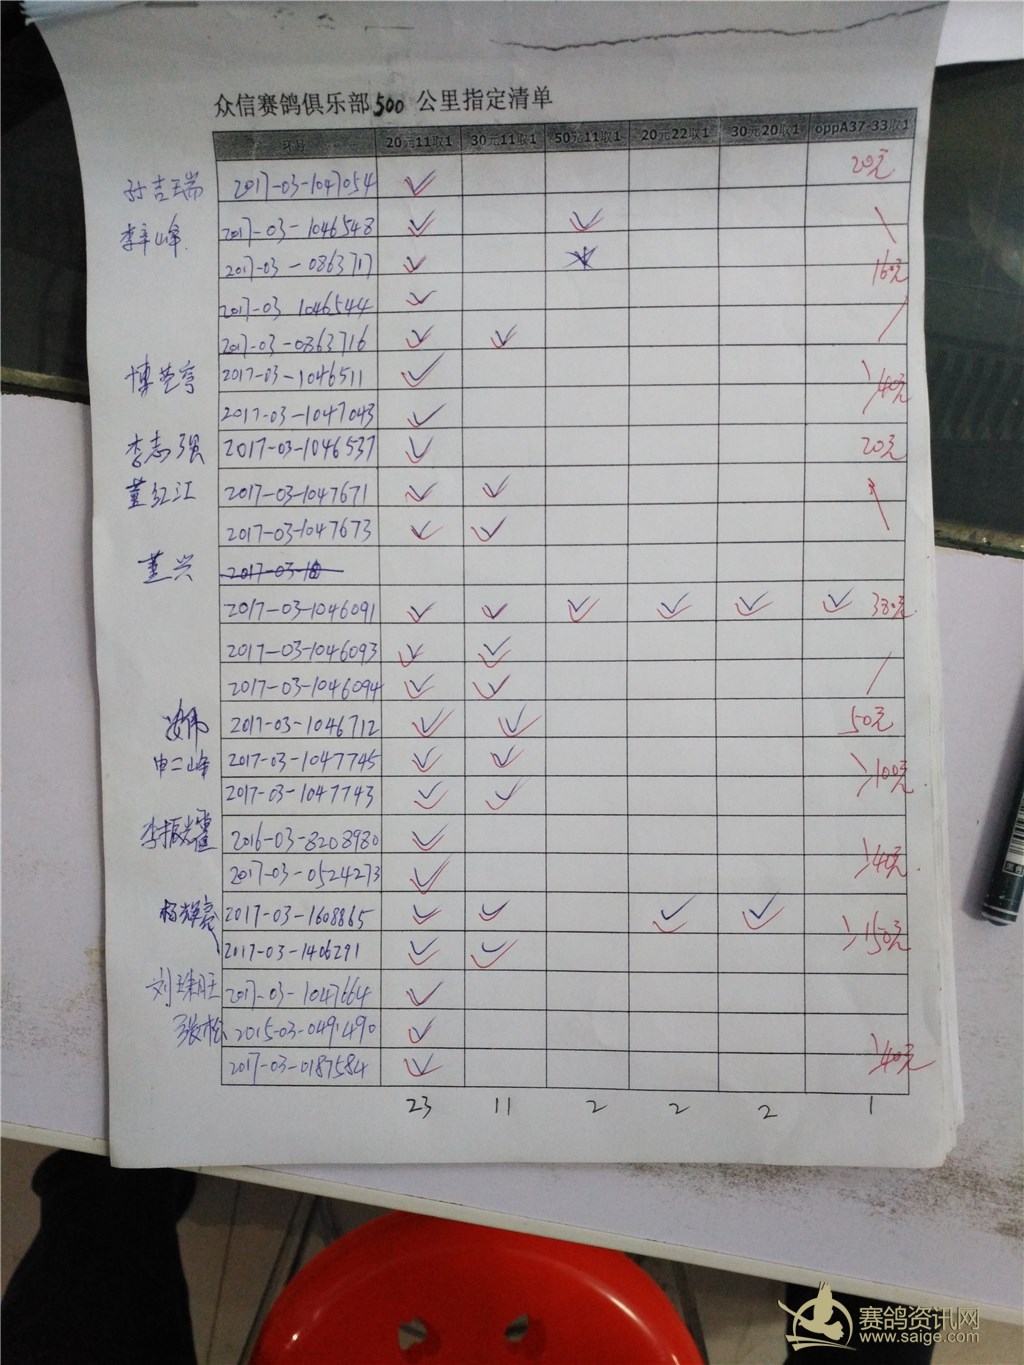 众信赛鸽俱乐部500 公里指定清单
环号 20元11取1 30元11取1 50元11取1 20元22取1 30元20取1 oppA37-33取1
孙吉瑞 2017-03-1047054 ✓ 20元
李辛峰 2017-03-1046548 ✓ ✓
2017-03-0863717 ✓ 160元
2017-03 1046544 ✓
2017-03-0863716 ✓ ✓
2017-03-1046511 ✓ 40元
2017-03-1047043 ✓
李志强 2017-03-1046537 ✓ 20元
董红江 2017-03-1047671 ✓ ✓
2017-03-1047673 ✓ ✓
董兴
2017-03-1046091 ✓ ✓ ✓ ✓ ✓ ✓ 380元
2017-03-1046093 ✓ ✓
2017-03-1046094 ✓ ✓
2017-03-1046712 ✓ ✓ 50元
申二峰 2017-03-1047745 ✓ ✓ 100元
2017-03-1047743 ✓ ✓
李振 2016-03-8208980 ✓ 40元
2017-03-0524273 ✓
杨辉亮 2017-03-1608865 ✓ ✓ ✓ ✓ 150元
2017-03-1406291 ✓ ✓
刘珠旺 2017-03-1047664 ✓
张松 2015-03-0491490 ✓ 40元
2017-03-0187584 ✓
23 11 2 2 2 1
赛鸽资讯网
www.saige.com